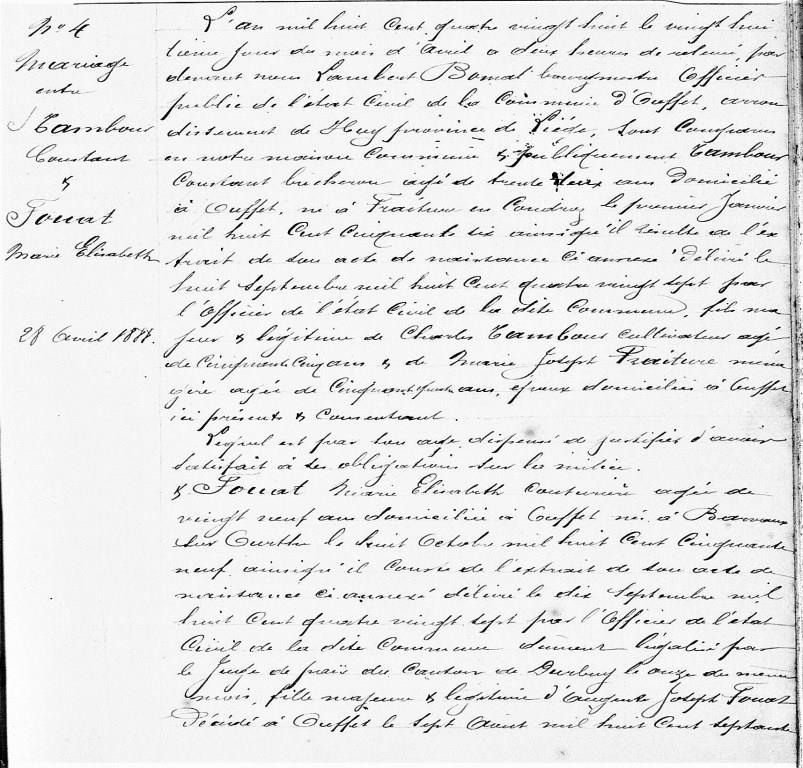 No 4
Mariage
entre
Tambour
Constant
&
Fouat
Marie Elisabeth
28 Avril 1888.
L'an mil huit Cent quatre vingt huit le vingt hui
tième jour du mois d'Avril a deux heures de relevé, par
devant nous Lambert Bomal bourgmestre Officier
public de l'état Civil de la Commune d'Ouffet, arron
dissement de Huy province de Liége, sont Comparus
en notre maison Commune & publiquement Tambour
Constant bucheron agé de trente deux ans Domicilié
à Ouffet, né à Fraiture en Condroz le premier Janvier
mil huit Cent Cinquante six ainsi qu'il résulte de l'ex
trait de son acte de naissance ci annexé délivré le
huit Septembre mil huit Cent quatre vingt sept par
l'Officier de l'état Civil de la dite Commune, fils ma
jeur & légitime de Charles Tambour Cultivateur agé
de Cinquante Cinq ans & de Marie Joseph Fraiture ména
gère agée de Cinquante quatre ans, époux domiciliés à Ouffet
ici présents & Consentant.
Lequel est par son age dispensé de justifier d'avoir
satisfait à ses obligations sur la milice.
& Fouat Marie Elisabeth Couturière agée de
vingt neuf ans domiciliée à Ouffet né à Barvaux
sur Ourthe le huit Octobre mil huit Cent Cinquante
neuf ainsi qu'il Conste de l'extrait de son acte de
naissance ci annexé délivré le dix Septembre mil
huit Cent quatre vingt sept par l'Officier de l'état
Civil de la dite Commune dûment légalisé par
le Juge de paix du Canton de Durbuy le onze du même
mois, fille majeure & légitime d'Auguste Joseph Fouat
Décédé à Ouffet le sept Aout mil huit Cent septante